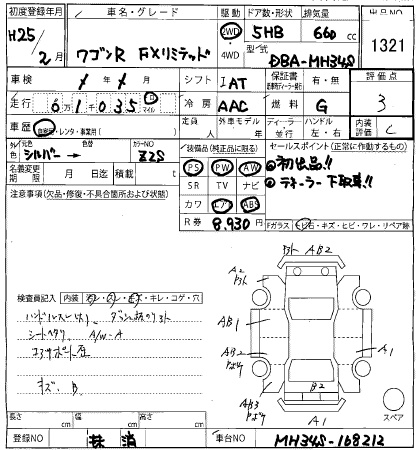 初度登録年月 車名・グレード 駆動 ドア数・形状 排気量 出品NO
H25/2月 ワゴンR FXリミテッド 2WD・4WD 5HB 660cc 1321
型式 DBA-MH34S
車検 / / シフト IAT 保証書 有・無 評価点 3
走行 6万1035 km マイル 冷房 AAC 燃料 G
車歴 自家用・レンタ・事業用( ) 定員 人 外車モデル 年 ディーラー・並行 ハンドル 左・右 内装評価 C
外装 元色 シルバー → 色替 カラーNO Z2S
名義変更期限 月 日迄 積載 t
装備品(純正品に限る) セールスポイント(正常に作動するもの)
PS PW AW ①初出品!!
SR TV ナビ ②デーラー下取車!!
カワ エアB ABS
R券 8,930円
注意事項(欠品・修復・不具合箇所および状態)
Fガラス ヒビ石・キズ・ヒビ・ワレ・リペア跡
検査員記入 内装 キレ・コゲ・穴
シートヘタリ A/W-A
キズ B
A2
AB2
AB1
AB2
A1
AB3
B2
A1
スペア
長さ cm 幅 cm 高さ cm
登録NO 抹消 車台NO MH34S-168212